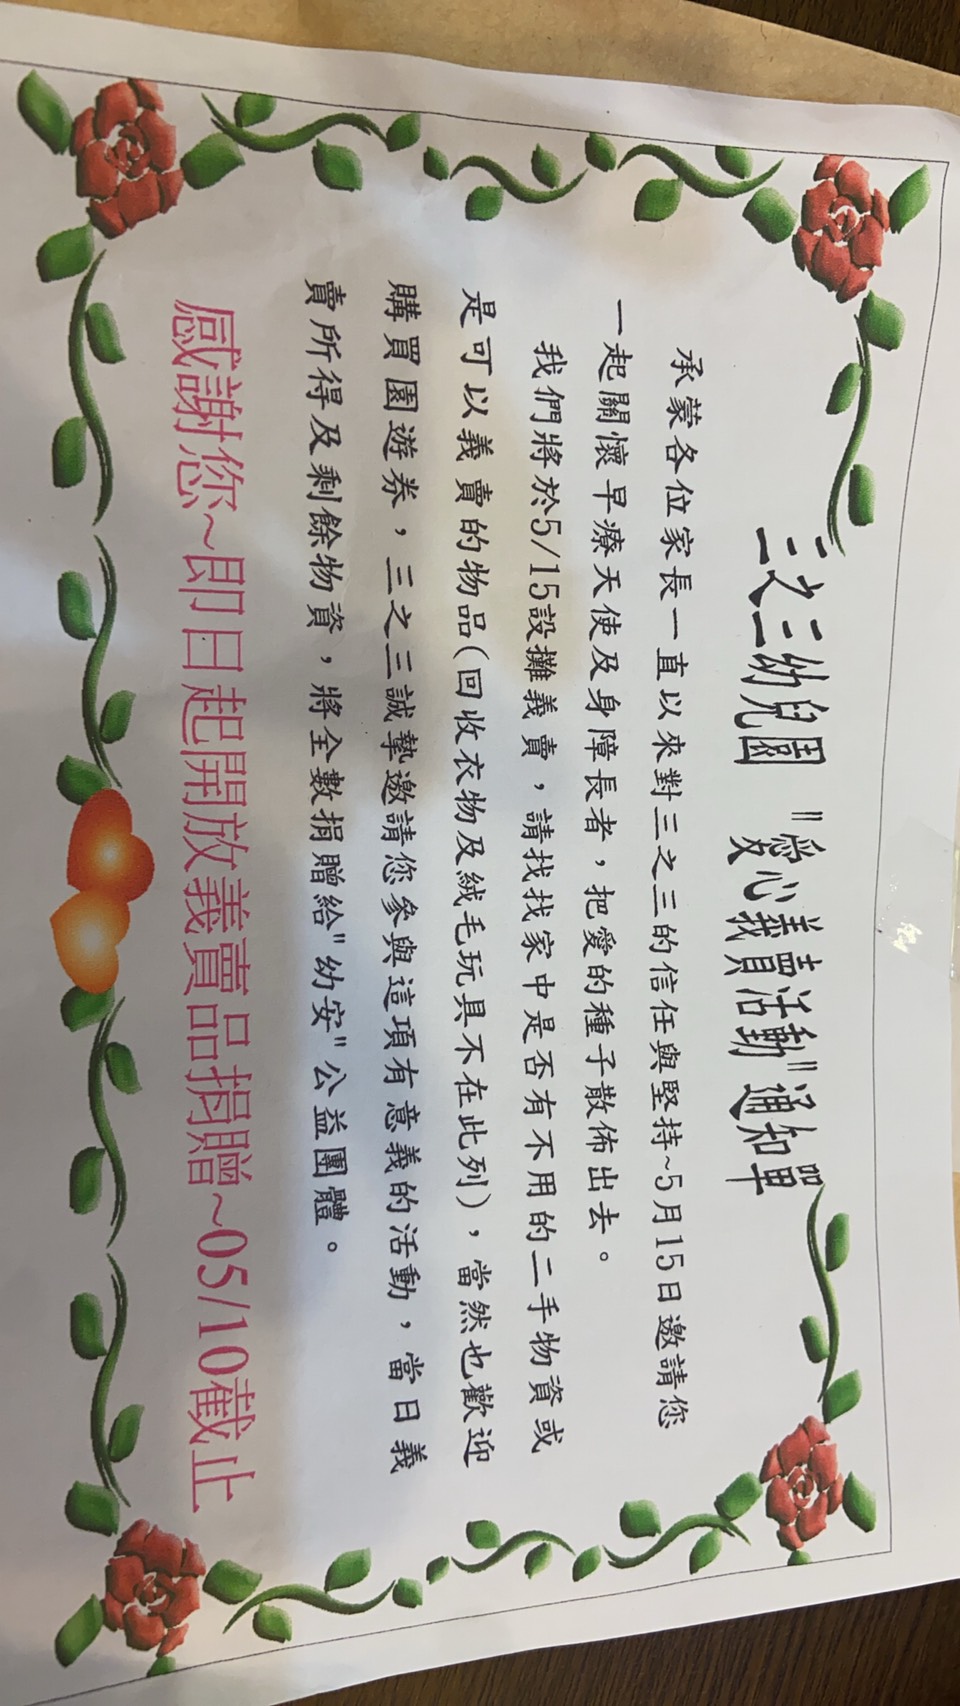 三之三幼兒園 "愛心義賣活動"通知單
承蒙各位家長一直以來對三之三的信任與堅持~5月15日邀請您
一起關懷早療天使及身障長者，把愛的種子散佈出去。
我們將於5/15設攤義賣，請找找家中是否有不用的二手物資或
是可以義賣的物品(回收衣物及絨毛玩具不在此列)，當然也歡迎
購買園遊券，三之三誠摯邀請您參與這項有意義的活動，當日義
賣所得及剩餘物資，將全數捐贈給"幼安"公益團體。
感謝您~即日起開放義賣品捐贈~05/10截止